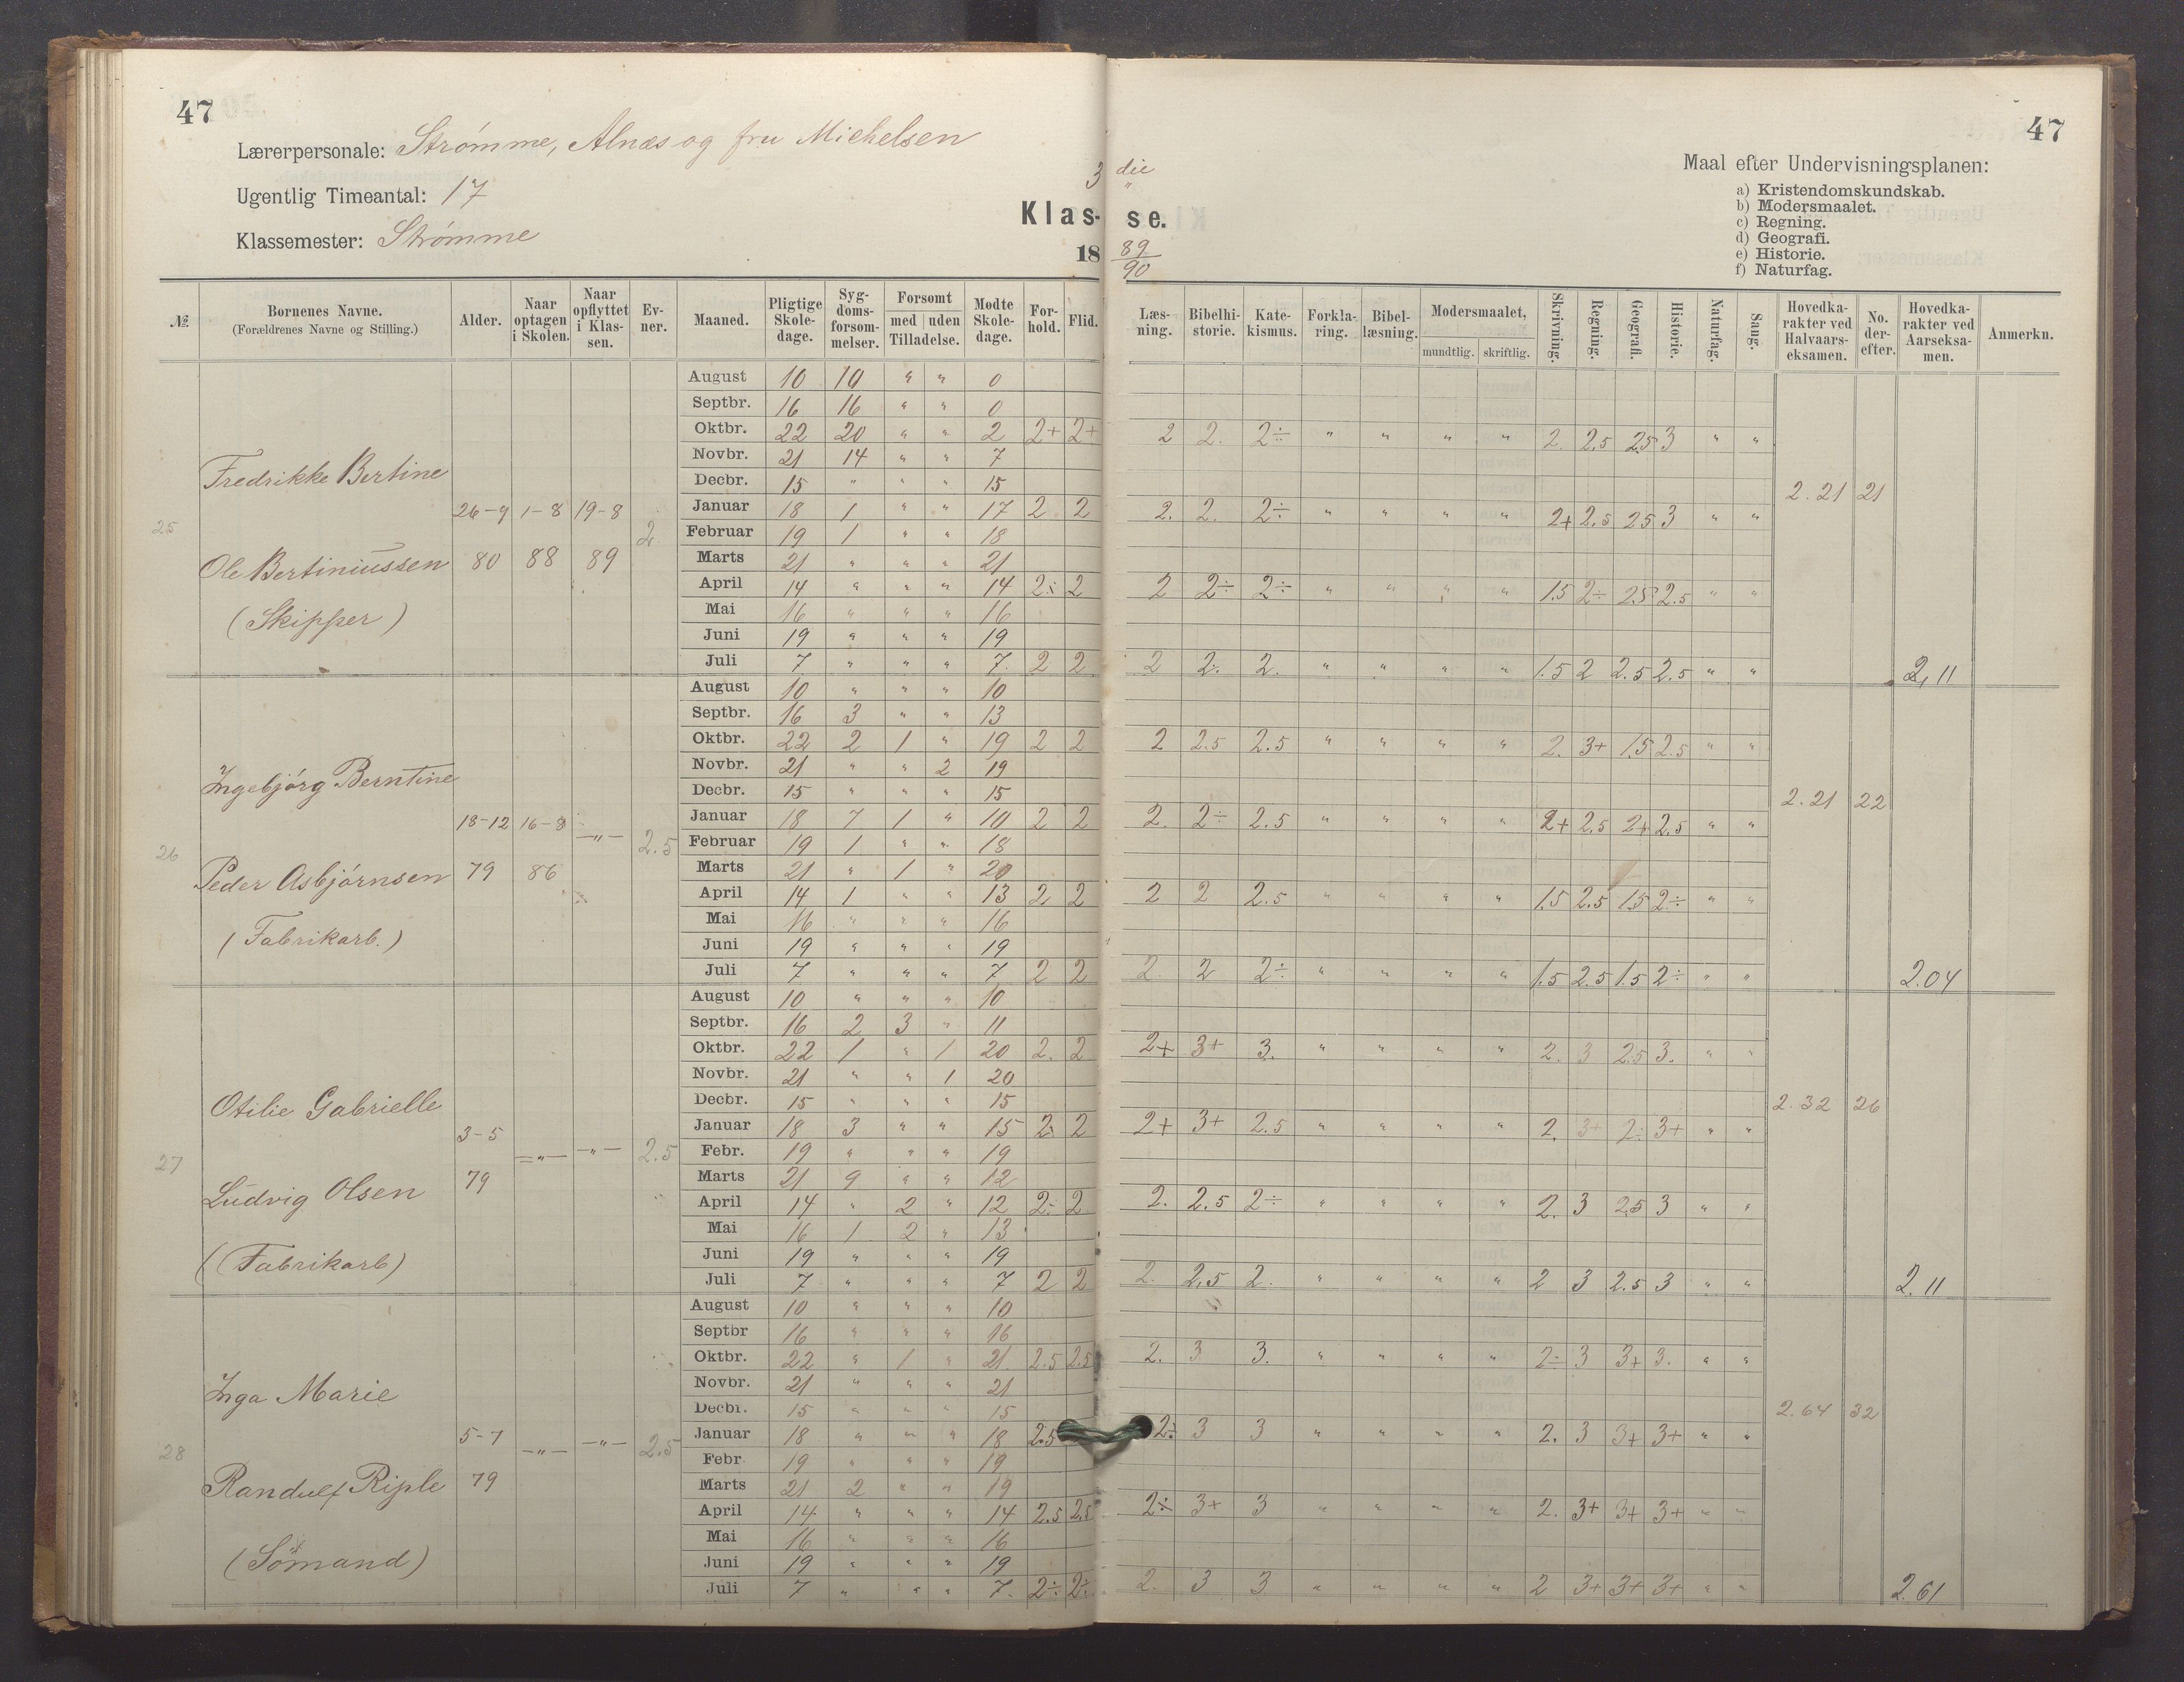 47
Lærerpersonale: Strømme, Alnæs og fru Michelsen
Ugentlig Timeantal: 17
Klassemester: Strømme
3 die
Klas- se.
18 89/90
47
Maal efter Undervisningsplanen:
a) Kristendomskundskab.
b) Modersmaalet.
c) Regning.
d) Geografi.
e) Historie.
f) Naturfag.
№ | Børnenes Navne. (Forældrenes Navne og Stilling.) | Alder. | Naar optagen i Skolen. | Naar opflyttet i Klassen. | Evner. | Maaned. | Pligtige Skoledage. | Sygdomsforsømmelser. | Forsømt med uden Tilladelse. | Mødte Skoledage. | Forhold. | Flid. | Læsning. | Bibelhistorie. | Katekismus. | Forklaring. | Bibellæsning. | Modersmaalet, mundtlig. skriftlig. | Skrivning. | Regning. | Geografi. | Historie. | Naturfag. | Sang. | Hovedkarakter ved Halvaarseksamen. | No. derefter. | Hovedkarakter ved Aarseksamen. | Anmerkn.
25
Fredrikke Bertine
Ole Bertiniussen
(Skipper)
26-9 80 | 1-8 88 | 19-8 89 | 2
August 10 10 " " 0
Septbr. 16 16 " " 0
Oktbr. 22 20 " " 2 2+ 2+ 2 2. 2÷ " " " " 2. 2.5 2.5 3 " "
Novbr. 21 14 " " 7
Decbr. 15 " " " 15 2.21 21
Januar 18 1 " " 17 2 2 2. 2. 2÷ " " " " 2+ 2.5 2.5 3 " "
Februar 19 1 " " 18
Marts 21 " " " 21
April 14 " " " 14 2÷ 2 2 2÷ 2÷ " " " " 1.5 2÷ 2.5 2.5 " "
Mai 16 " " " 16
Juni 19 " " " 19
Juli 7 " " " 7. 2 2 2 2. 2. " " " " 1.5 2 2.5 2.5 " " 2,11
26
Ingebjørg Berntine
Peder Asbjørnsen
(Fabrikarb.)
18-12 79 | 16-8 86 | —"— | 2.5
August 10 " " " 10
Septbr. 16 3 " " 13
Oktbr. 22 2 1 " 19 2 2 2 2.5 2.5 " " " " 2. 3+ 1.5 2.5 " "
Novbr. 21 " " 2 19
Decbr. 15 " " " 15 2.21 22
Januar 18 7 1 " 10 2 2 2. 2÷ 2.5 " " " " 2+ 2.5 2+ 2.5 " "
Februar 19 1 " " 18
Marts 21 " 1 " 20
April 14 1 " " 13 2 2 2 2 2.5 " " " " 1.5 2.5 1.5 2÷ " "
Mai 16 " " " 16
Juni 19 " " " 19
Juli 7 " " " 7 2 2 2. 2 2÷ " " " " 1.5 2.5 1.5 2÷ " " 2.04
27
Otilie Gabrielle
Ludvig Olsen
(Fabrikarb)
3-5 79 | —"— | —"— | 2.5
August 10 " " " 10
Septbr. 16 2 3 " 11
Oktbr. 22 1 " 1 20 2. 2 2+ 3+ 3. " " " " 2. 3 2.5 3. " "
Novbr. 21 " " 1 20
Decbr. 15 " " " 15 2.32 26
Januar 18 3 " " 15 2 2 2+ 3+ 2.5 " " " " 2. 3+ 2÷ 3+ " "
Febr. 19 " " " 19
Marts 21 9 " " 12
April 14 " 2 " 12 2÷ 2 2. 2.5 2÷ " " " " 2. 3 2.5 3 " "
Mai 16 1 2 " 13
Juni 19 " " " 19
Juli 7 " " " 7 2 2 2. 2.5 2. " " " " 2 3 2.5 3 " " 2.11
28
Inga Marie
Randulf Riple
(Sømand)
5-7 79 | —"— | —"— | 2.5
August 10 " " " 10
Septbr 16 " " " 16
Oktbr. 22 " 1 " 21. 2.5 2.5 2. 3 3. " " " " 2÷ 3 3+ 3. " "
Novbr. 21 " " " 21
Decbr. 15 " " " 15 2.64 32
Januar 18 " " " 18 2.5 2÷ 3 3 " " " " 2. 3 3+ 3+ " "
Febr 19 " " " 19
Marts 21 2 " " 19
April 14 " " " 14 2.5 2.5 2÷ 3+ 3 " " " " 2. 3+ 3+ 3+ " "
Mai 16 " " " 16
Juni 19 " " " 19
Juli 7 " " " 7. 2÷ 2÷ 2. 3 3 " " " " 2 3+ 3+ 3+ " " 2.61